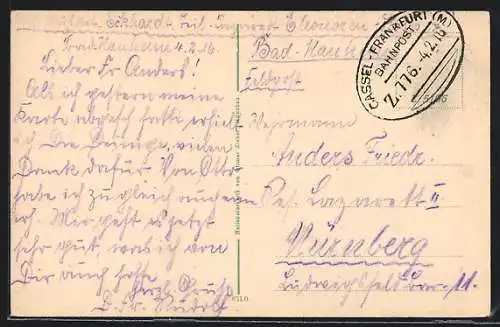 Bad Nauheim 4.2.16.
Lieber Fr. Anders!
Als ich gestern meine
Karte abgeschickt erhielt
ich Die Deinige, vielen
Dank dafür. Von Otto
habe ich zugleich auch eine
erh. Mir geht es jetzt
sehr gut, was ich von
Dir auch hoffe.
Herzl. Gruß
Bad-Nauheim
Feldpost
CASSEL-FRANKFURT (M)
BAHNPOST
Z.776. 4.2.16
Wehrmann
Anders Friedr.
Res. Lazarett II
Nürnberg
Ludwigsfeld